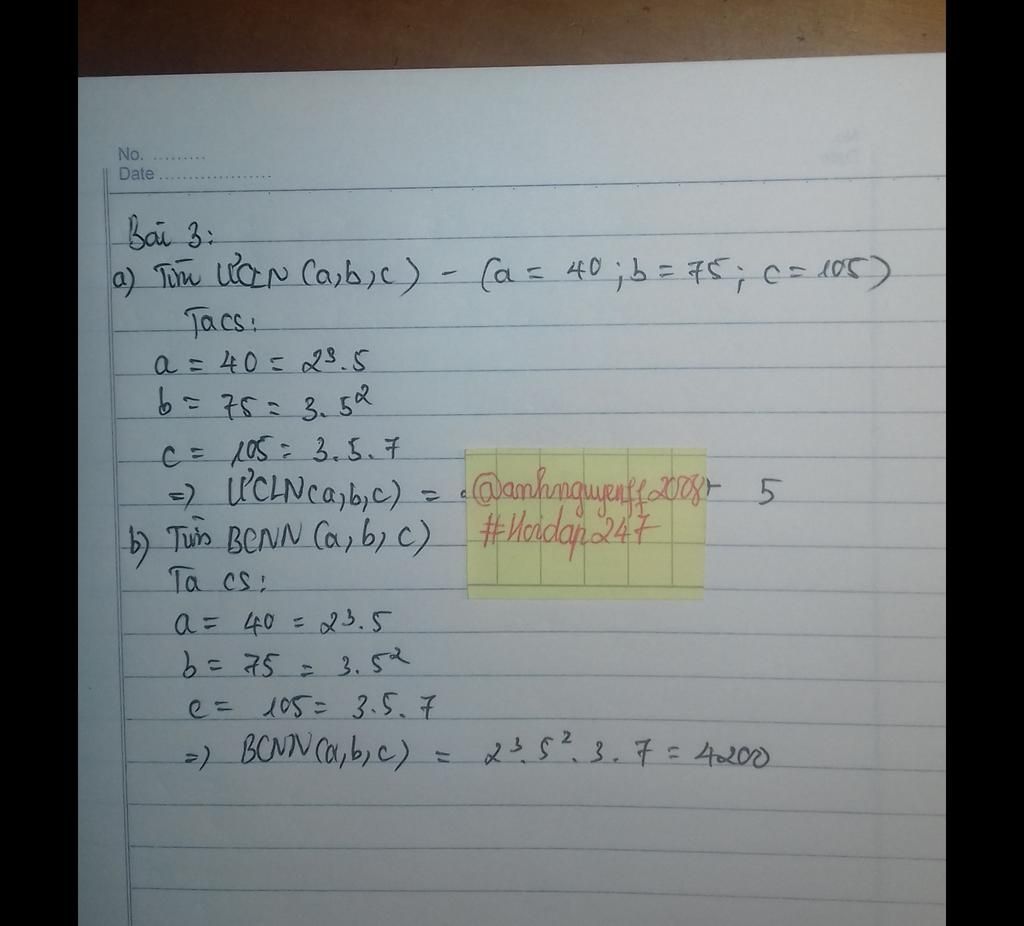 No. .........
Date ...................
Bài 3:
a) Tìm ƯCLN (a,b,c) - (a = 40 ; b = 75 ; c = 105)
Ta có:
a = 40 = 2³.5
b = 75 = 3.5²
c = 105 = 3.5.7
=> ƯCLN(a,b,c) = 5
@anhnguyenff2008
#Hoidap247
b) Tìm BCNN (a, b, c)
Ta có:
a = 40 = 2³.5
b = 75 = 3.5²
c = 105 = 3.5.7
=> BCNN(a,b,c) = 2³.5².3.7 = 4200